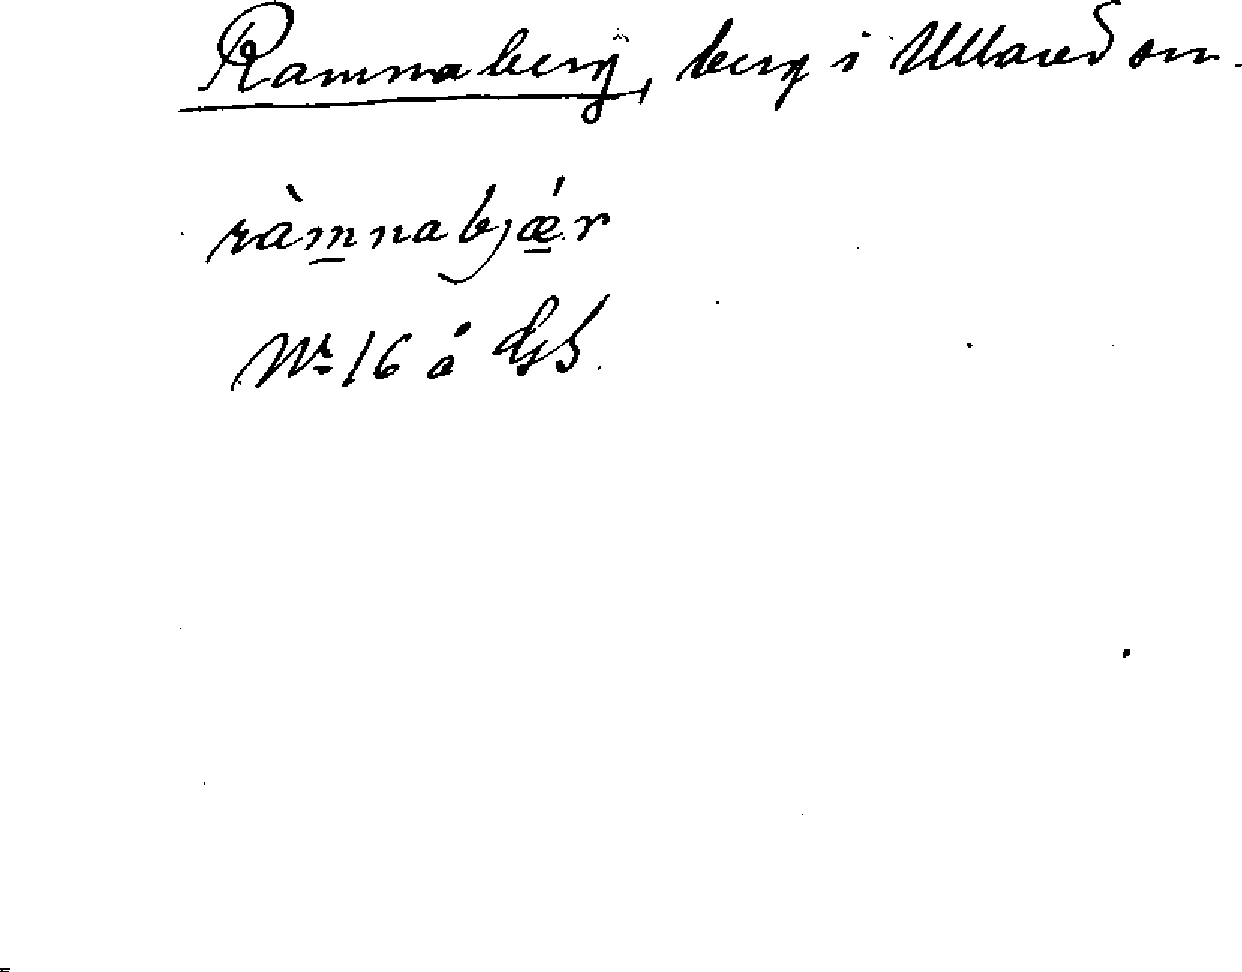 Ramnaberg, berg i Ullared sn.
ràm̲nabjǽ̲r
Nr 16 å GS.